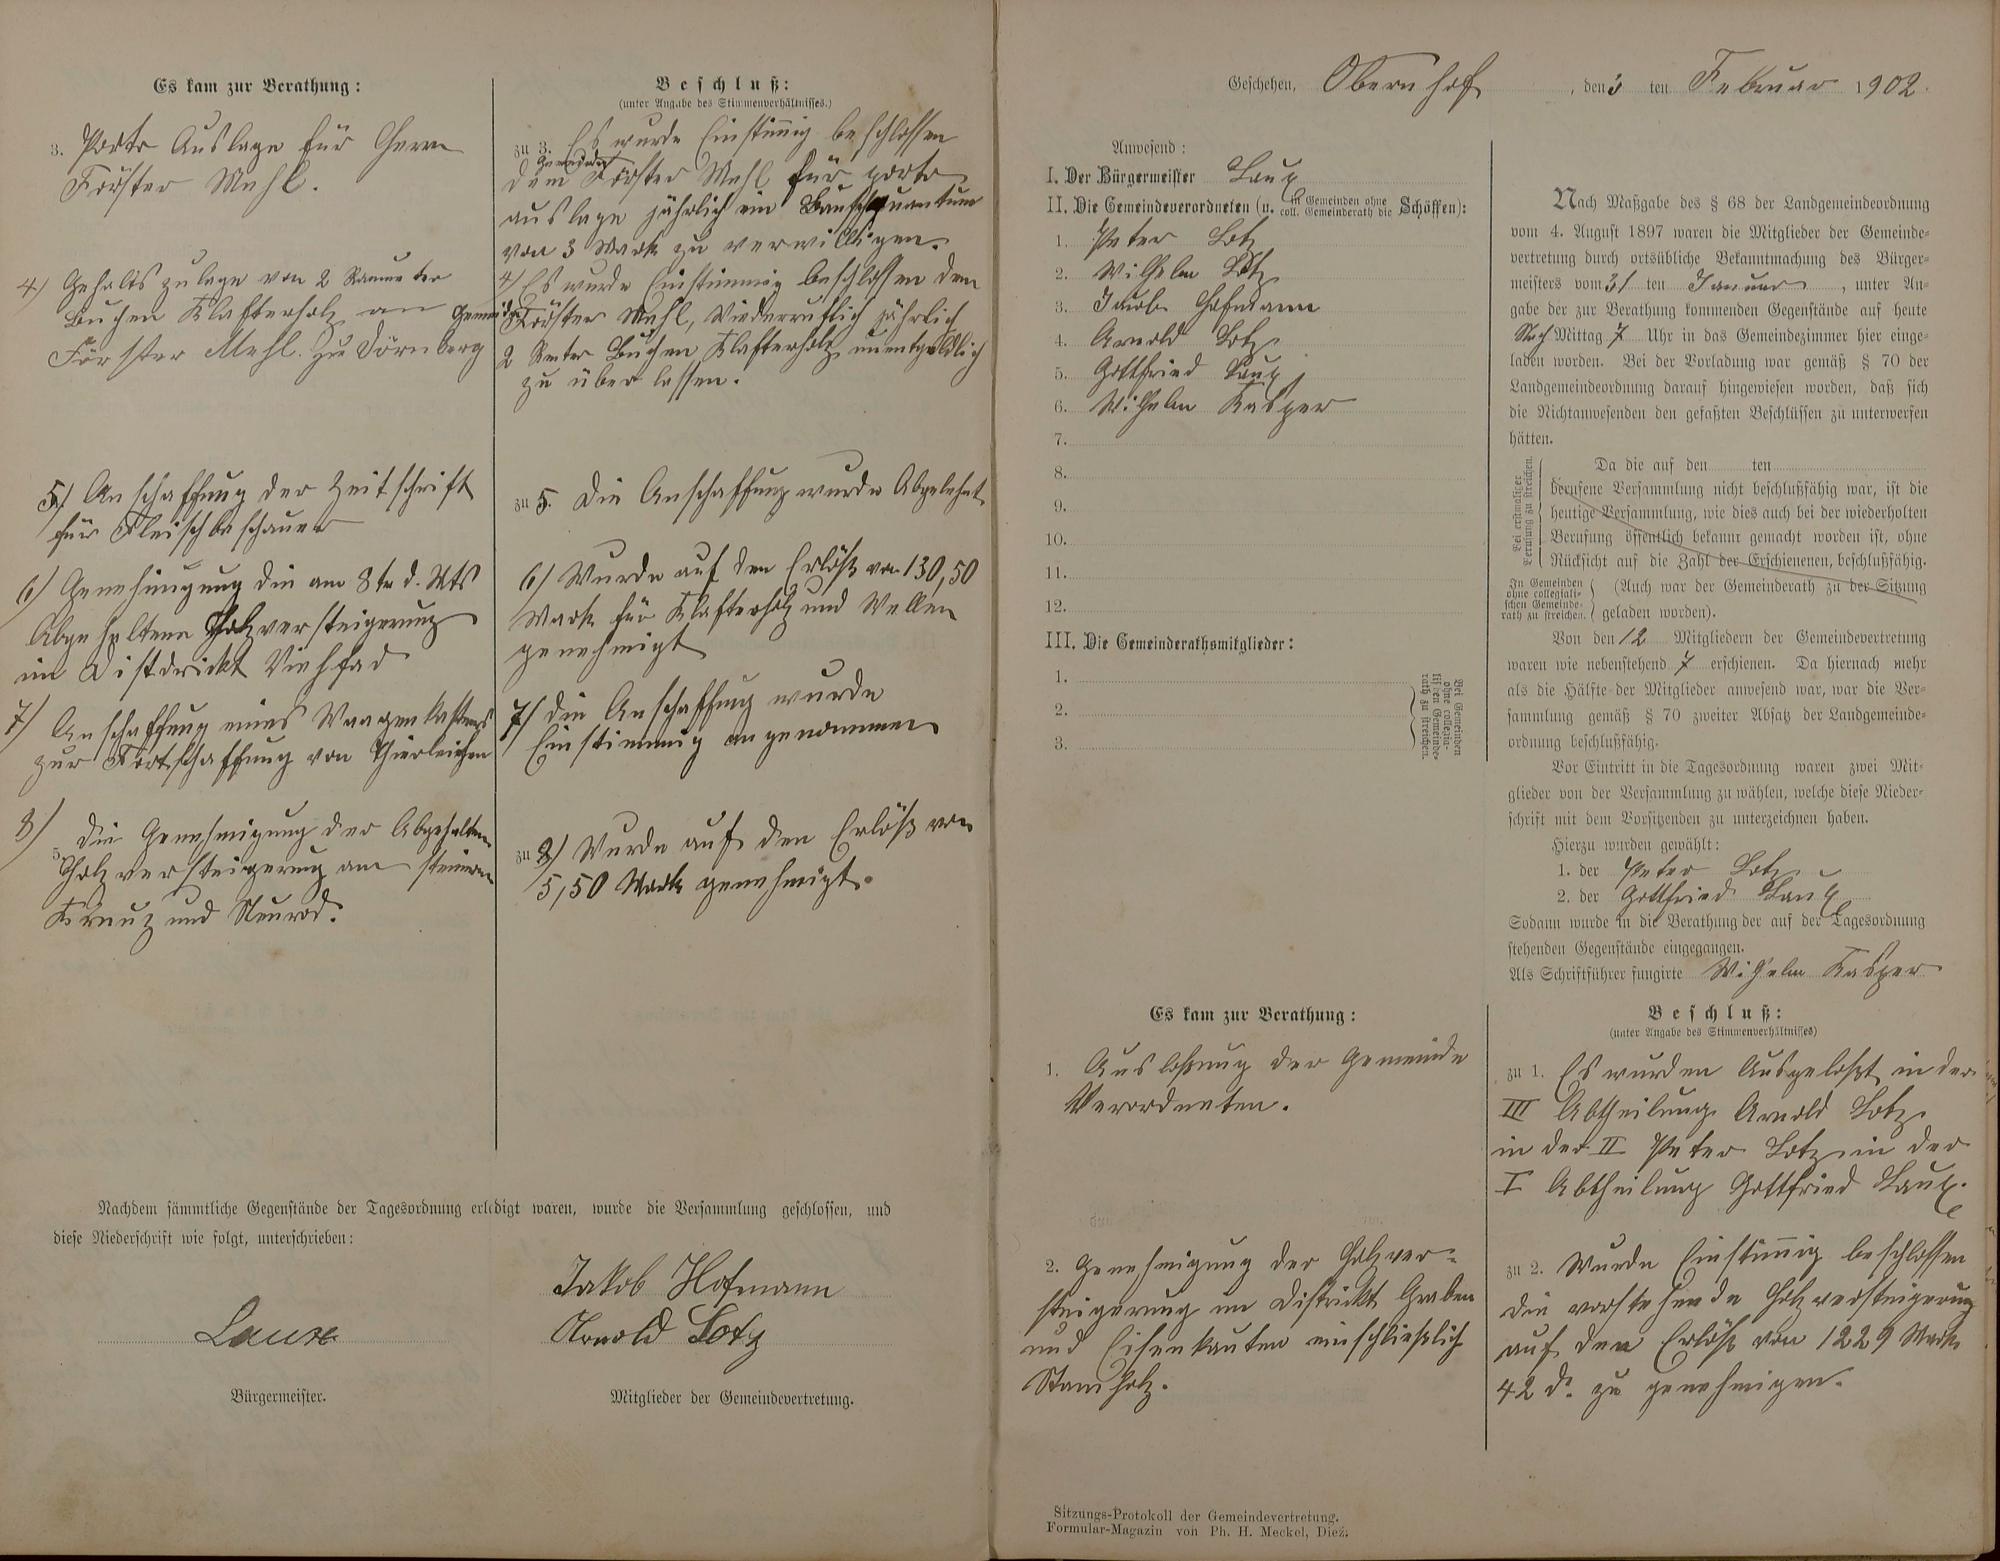 Es kam zur Berathung:
3. Porto Auslage für Herrn
Förster Mehl.
4) Gehaltszulage von 2 Raumeter
Buchen Klafterholz an Gemeinde
Förster Mehl. zu Dörnberg
5) Anschaffung der Zeitschrift
für Fleischbeschauer
6) Genehmigung die am 8te d. Mts
Abgehaltene Holzversteigerung
im Distdrickt Viehpfad
7) Anschaffung eines Waagenkastens
zur Fortschaffung von Thierleichen
8) die Genehmigung der Abgehalten
5.
Holzversteigerung am steinern
Kreuz und Neurod.
Beschluß:
(unter Angabe des Stimmenverhältnisses.)
zu 3. Es wurde Einstimig beschlossen
Gemeinde
dem Förster Mehl für porto
auslage jährlich ein Bauschquantum
von 3 Mark zu verwilligen.
4) Es wurde Einstimmig beschlossen dem
Förster Mehl, Wiederruflich jährlich
2 Rmter Buchen Klafterholz unentgeldlich
zu über lassen.
zu 5. Die Anschaffung wurde Abgelehnt
6) Wurde auf den Erlöß von 130,50
Mark für Klafterholz und Wellen
genehmigt
7) die Anschaffung wurde
Einstimmig angenommen
zu 8) Wurde auf den Erlöß von
5,50 Mark genehmigt.
Nachdem sämmtliche Gegenstände der Tagesordnung erledigt waren, wurde die Versammlung geschlossen, und
diese Niederschrift wie folgt, unterschrieben:
Jakob Hofmann
Laux
Arnold Lotz
Bürgermeister.
Mitglieder der Gemeindevertretung.
Geschehen, Obernhof, den 3 ten Februar 1902.
Anwesend:
I. Der Bürgermeister Laux
II. Die Gemeindeverordneten (u. in Gemeinden ohne coll. Gemeinderath die Schöffen):
1. Peter Lotz
2. Wilhelm Lotz
3. Jacob Hofmann
4. Arnold Lotz
5. Gottfried Laux
6. Wilhelm Kasper
7.
8.
9.
10.
11.
12.
III. Die Gemeinderathsmitglieder:
1.
2.
3.
Bei Gemeinden
ohne collegia-
lischen Gemeinde-
rath zu streichen.
Nach Maßgabe des § 68 der Landgemeindeordnung
vom 4. August 1897 waren die Mitglieder der Gemeinde-
vertretung durch ortsübliche Bekanntmachung des Bürger-
meisters vom 31 ten Januar, unter An-
gabe der zur Berathung kommenden Gegenstände auf heute
Nach Mittag 7 Uhr in das Gemeindezimmer hier einge-
laden worden. Bei der Vorladung war gemäß § 70 der
Landgemeindeordnung darauf hingewiesen worden, daß sich
die Nichtanwesenden den gefaßten Beschlüssen zu unterwerfen
hätten.
Bei erstmaliger
Berufung zu streichen.
Da die auf den ten
berufene Versammlung nicht beschlußfähig war, ist die
heutige Versammlung, wie dies auch bei der wiederholten
Berufung öffentlich bekannt gemacht worden ist, ohne
Rücksicht auf die Zahl der Erschienenen, beschlußfähig.
In Gemeinden
ohne collegiali-
schen Gemeinde-
rath zu streichen.
(Auch war der Gemeinderath zu der Sitzung
geladen worden).
Von den 12 Mitgliedern der Gemeindevertretung
waren wie nebenstehend 7 erschienen. Da hiernach mehr
als die Hälfte der Mitglieder anwesend war, war die Ver-
sammlung gemäß § 70 zweiter Absatz der Landgemeinde-
ordnung beschlußfähig.
Vor Eintritt in die Tagesordnung waren zwei Mit-
glieder von der Versammlung zu wählen, welche diese Nieder-
schrift mit dem Vorsitzenden zu unterzeichnen haben.
Hierzu wurden gewählt:
1. der Peter Lotz
2. der Gottfried Laux
Sodann wurde in die Berathung der auf der Tagesordnung
stehenden Gegenstände eingegangen.
Als Schriftführer fungirte Wilhelm Kasper
Es kam zur Berathung:
1. Auslossung der Gemeinde
Verordneten.
2. Genehmigung der Holzver-
steigerung im Districkt Graben
und Eisenkauten einschließlich
Stamholz.
Beschluß:
(unter Angabe des Stimmenverhältnisses)
zu 1. Es wurden Ausgeloßt in der
III Abtheilung Arnold Lotz
in der II Peter Lotz in der
I Abtheilung Gottfried Laux.
zu 2. Wurde Einstimig beschlossen
die vorstehende Holzversteigerung
auf den Erlöß von 1229 Mark
42 d. zu genehmigen.
Sitzungs-Protokoll der Gemeindevertretung.
Formular-Magazin von Ph. H. Meckel, Diez.